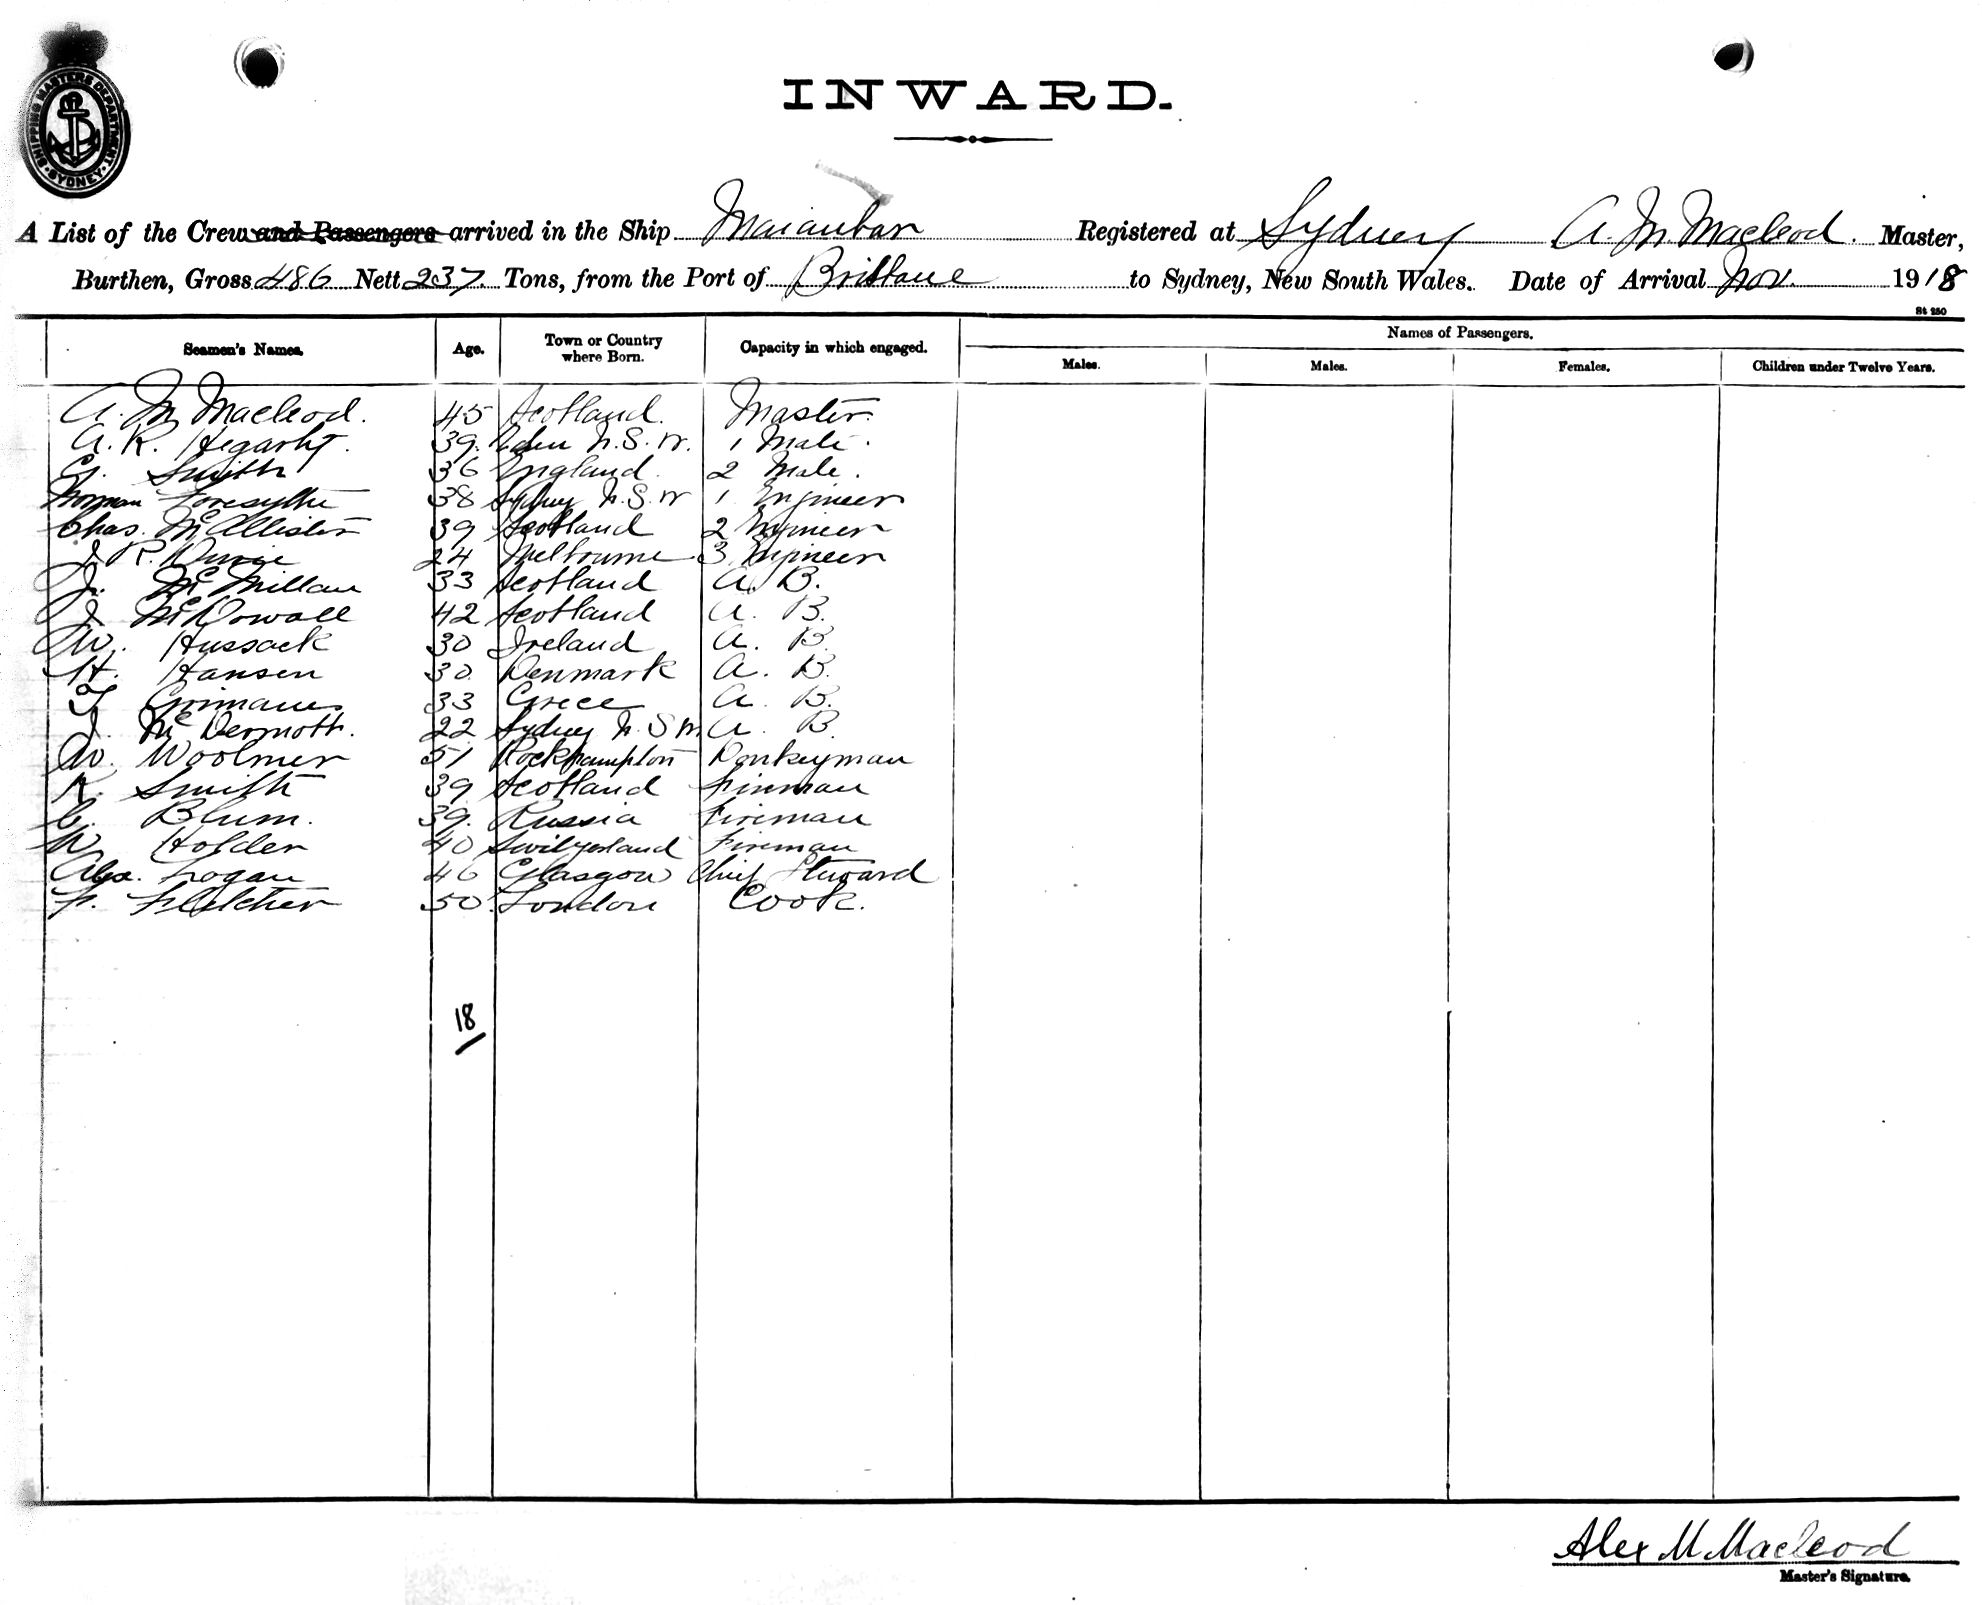 SHIPPING MASTERS DEPARTMENT
SYDNEY
INWARD.
A List of the Crew and Passengers arrived in the Ship Maianbar Registered at Sydney A. M. Macleod. Master,
Burthen, Gross 486 Nett 237. Tons, from the Port of Brisbane to Sydney, New South Wales. Date of Arrival Nov. 1918
St 250
Seamen's Names. Age. Town or Country where Born. Capacity in which engaged. Names of Passengers.
Males. Males. Females. Children under Twelve Years.
A. M Macleod. 45 Scotland. Master.
A. K. Hegarty. 39. Eden N.S.W. 1 Mate.
G. Smith 36 England. 2 Mate.
Norman Foresythe 38 Sydney N.S.W 1 Engineer
Chas. McAllister 39 Scotland 2 Engineer
J. R. 24 Melbourne 3 Engineer
J. McMillan 33 Scotland A. B.
J McDowall 42 Scotland A. B.
W. Hussack 30 Ireland A. B.
H. Hansen 30. Denmark A. B.
33 Grece A. B.
J. McDermott. 22 Sydney N.S.W. A. B.
W. Woolmer 51 Rockhampton Donkeyman
R. Smith 39 Scotland Fireman
C. Blum. 39. Russia Fireman
W Holder 40 Switzerland Fireman
Alex. Logan 46 Glasgow Chief Steward
F. Fletcher 50 London Cook.
18
Alex M Macleod
Master's Signature.